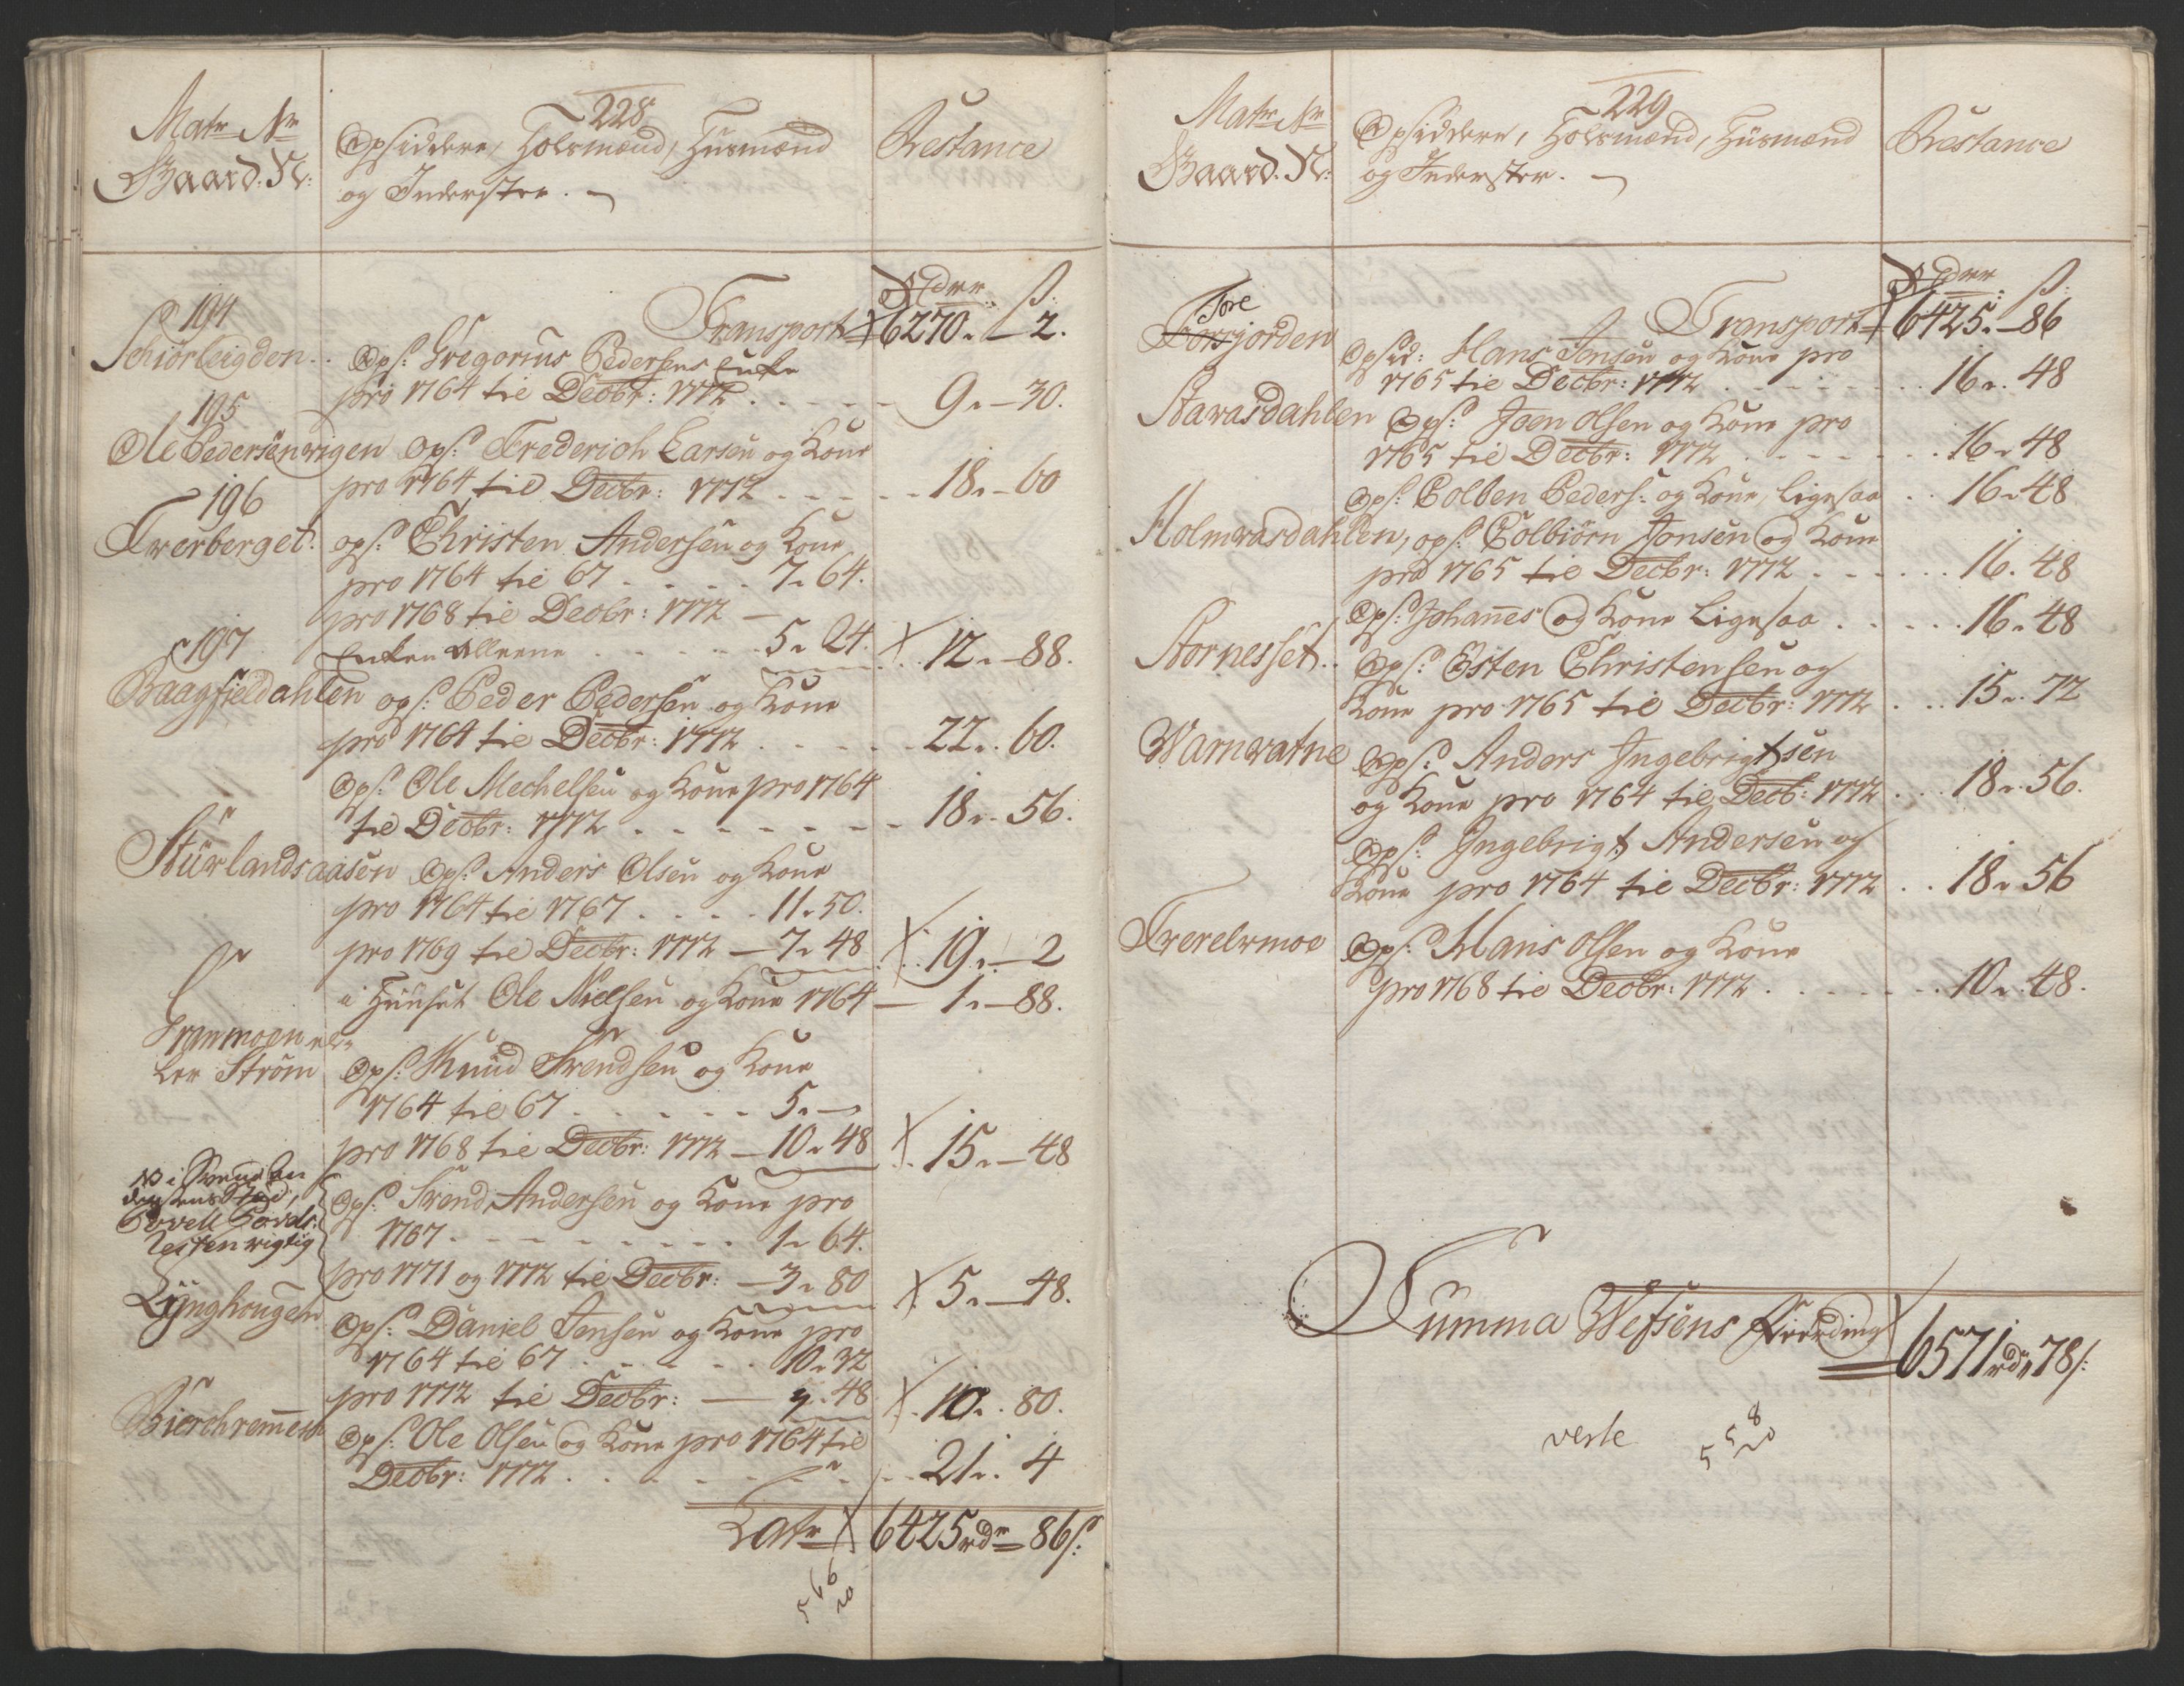 228
Matr Nr
Gaard. N:
Opsiddere, Holsmænd, Huusmænd
og Inderster.
Restance
Rdr ß.
Transport 6270. 2.
194
Schiörleigden. Ops: Gregorius Pedersens Enke
pro 1764 til Decbr: 1772 9. 30.
195
Ole Pedersenvigen Ops: Frederich Larsen og Kone
pro 1764 til Decbr: 1772 18. 60
196
Tverberget. ops: Christen Andersen og Kone
pro 1764 til 67 7. 64.
pro 1768 til Decbr: 1772
Enken alleene 5. 24. 12. 88.
197
Baagfieldahlen ops: Peder Pedersen og Kone
pro 1764 til Decbr: 1772 22. 60.
Ops: Ole Mechelsen og Kone pro 1764
til Decbr: 1772 18. 56.
Stürlandsaasen Ops: Anders Olsen og Kone
pro 1764 til 1767 11. 50.
pro 1769 til Decbr: 1772 7. 48 19. 2
i Huuset Ole Nielsen og Kone 1764 1. 88.
Granmoen el-
ler Ström Ops: Knud Svendsen og Kone
1764 til 67 5. -
pro 1768 til Decbr: 1772 10. 48 15. 48
Resten rigtig
Ops: Svend Andersen og Kone pro
1767 1. 64.
pro 1771 og 1772 til Decbr: 3. 80 5. 48.
Lÿnghougen Ops: Daniel Jensen og Kone pro
1764 til 67 10. 32
pro 1772 til Decbr: 48 10. 80.
Ops: Ole Olsen og Kone pro 1764 til
Decbr: 1772 21. 4
Latr 6425 rdr 86 ß:
5 66
20
229
Matr Nr
Gaard. N:
Opsiddere, Holsmænd, Huusmænd
og Inderster.
Restance
Rdr ß.
Transport 6425. 86
Tore
Forsjorden Opsid: Hans Jonsen og Kone pro
1765 til Decbr: 1772 16. 48
Stavasdahlen Ops: Joen Olsen og Kone pro
1765 til Decbr: 1772 16. 48
Ops: Colben Peders: og Kone, ligesaa 16. 48
Holmvasdahlen, ops: Colbiörn Jonsen og Kone
pro 1765 til Decbr: 1772 16. 48
Ops: Johanes og Kone Ligesaa 16. 48
Stornesset. Ops: Esten Christensen og
Kone pro 1765 til Decbr: 1772 15. 72
Warnvatne Ops: Anders Ingebrigtsen
og Kone pro 1764 til Decb: 1772 18. 56.
Ops: Ingebrigt Andersen og
Kone pro 1764 til Decbr: 1772 18. 56
Tverelvmoe Ops: Hans Olsen og Kone
pro 1768 til Decbr: 1772 10. 48.
Summa Wefsens Fierding 6571 rdr 78 ß:
verte
5 58
20